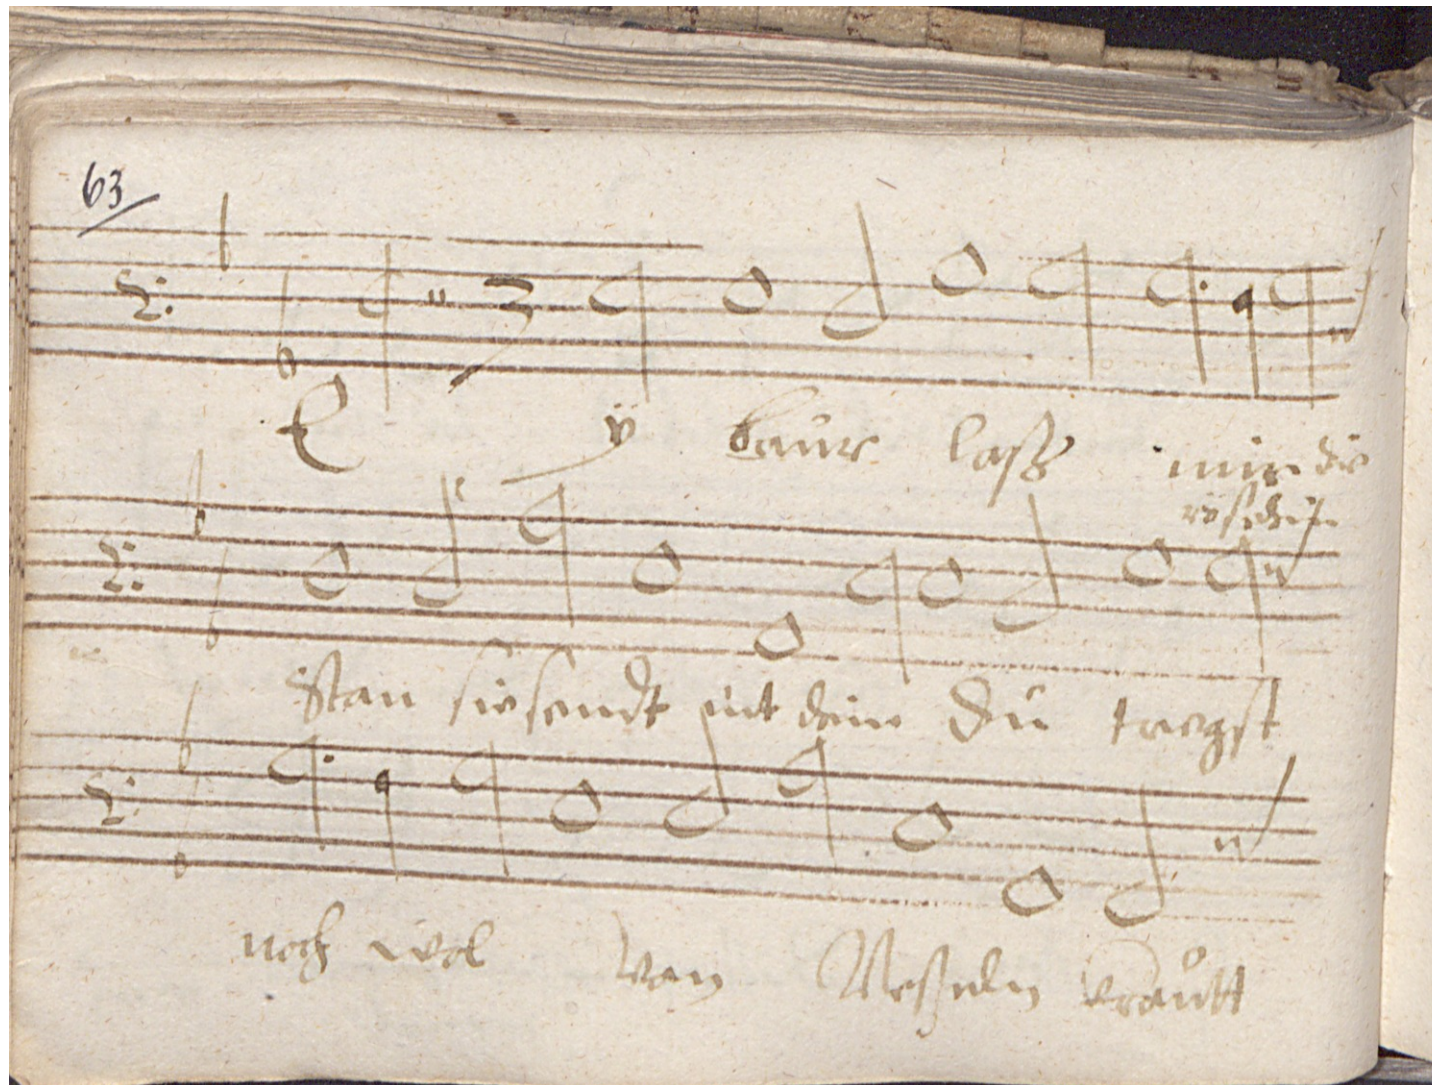 63
Ey baur lass mir die
röslein
stan sie sendt nit dein du tregst
noch wol von Nesseln krautt